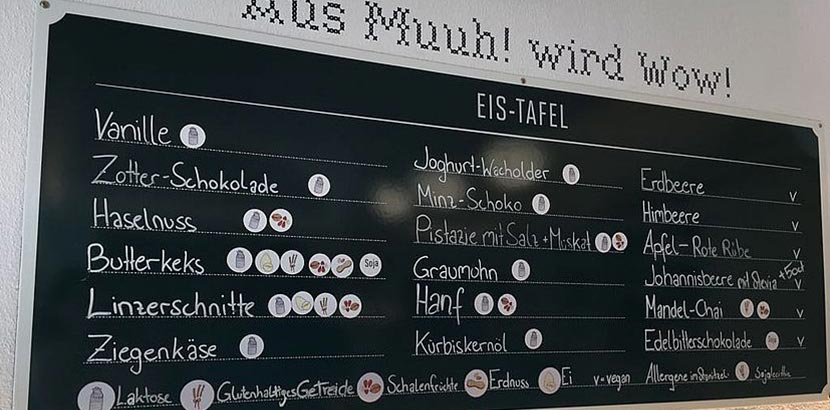 Aus Muuh! wird Wow!
EIS-TAFEL
Vanille
Zotter-Schokolade
Haselnuss
Butterkeks Soja
Linzerschnitte
Ziegenkäse
Joghurt-Wacholder
Minz-Schoko
Pistazie mit Salz + Muskat
Graumohn
Hanf
Kürbiskernöl
Erdbeere v
Himbeere v
Apfel-Rote Rübe v
Johannisbeere mit Stevia +50ct v
Mandel-Chai v
Edelbitterschokolade Soja v
Laktose Glutenhaltiges Getreide Schalenfrüchte Erdnuss Ei v=vegan Allergene im Stanitzel: Sojalecithin